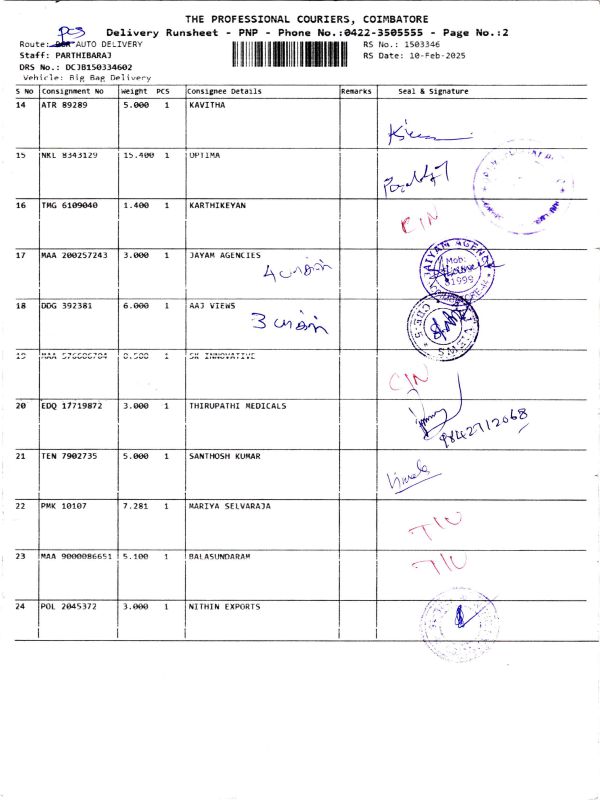 THE PROFESSIONAL COURIERS, COIMBATORE
Delivery Runsheet - PNP - Phone No.:0422-3505555 - Page No.:2
pcs
Route: AUTO DELIVERY RS No.: 1503346
Staff: PARTHIBARAJ RS Date: 10-Feb-2025
DRS No.: DCJB150334602
Vehicle: Big Bag Delivery
S No Consignment No Weight PCS Consignee Details Remarks Seal & Signature
14 ATR 89289 5.000 1 KAVITHA
15 NKL 8343129 15.400 1 OPTIMA
16 TMG 6109040 1.400 1 KARTHIKEYAN CIN
17 MAA 200257243 3.000 1 JAYAM AGENCIES
4 பார்சல்
Mob:
81999
18 DDG 392381 6.000 1 AAJ VIEWS
3 பார்சல்
CBE-5
VIEWS
19 MAA 576606704 0.500 1 SK INNOVATIVE CIN
20 EDQ 17719872 3.000 1 THIRUPATHI MEDICALS
9842712068
21 TEN 7902735 5.000 1 SANTHOSH KUMAR
22 PMK 10107 7.281 1 MARIYA SELVARAJA TIU
23 MAA 9000086651 5.100 1 BALASUNDARAM TIU
24 POL 2045372 3.000 1 NITHIN EXPORTS